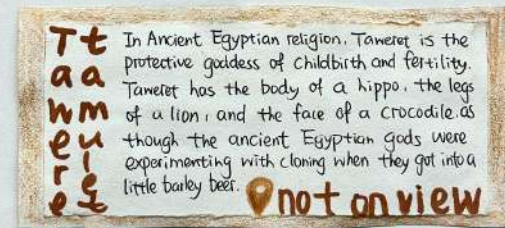 Taweret
tamulet
In Ancient Egyptian religion, Taweret is the
protective goddess of childbirth and fertility.
Taweret has the body of a hippo, the legs
of a lion, and the face of a crocodile. as
though the ancient Egyptian gods were
experimenting with cloning when they got into a
little barley beer.
not on view